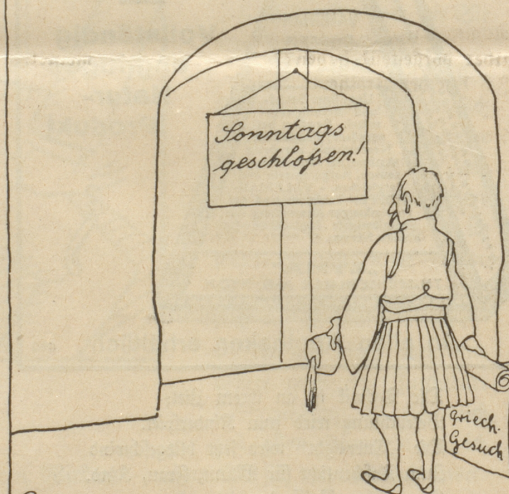 Sonntags
geschloßen!
griech.
Gesuch